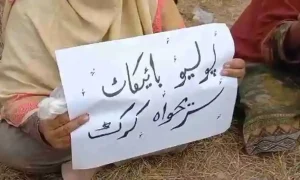 پولیو بائیکاٹ
ستر خواہ کرک